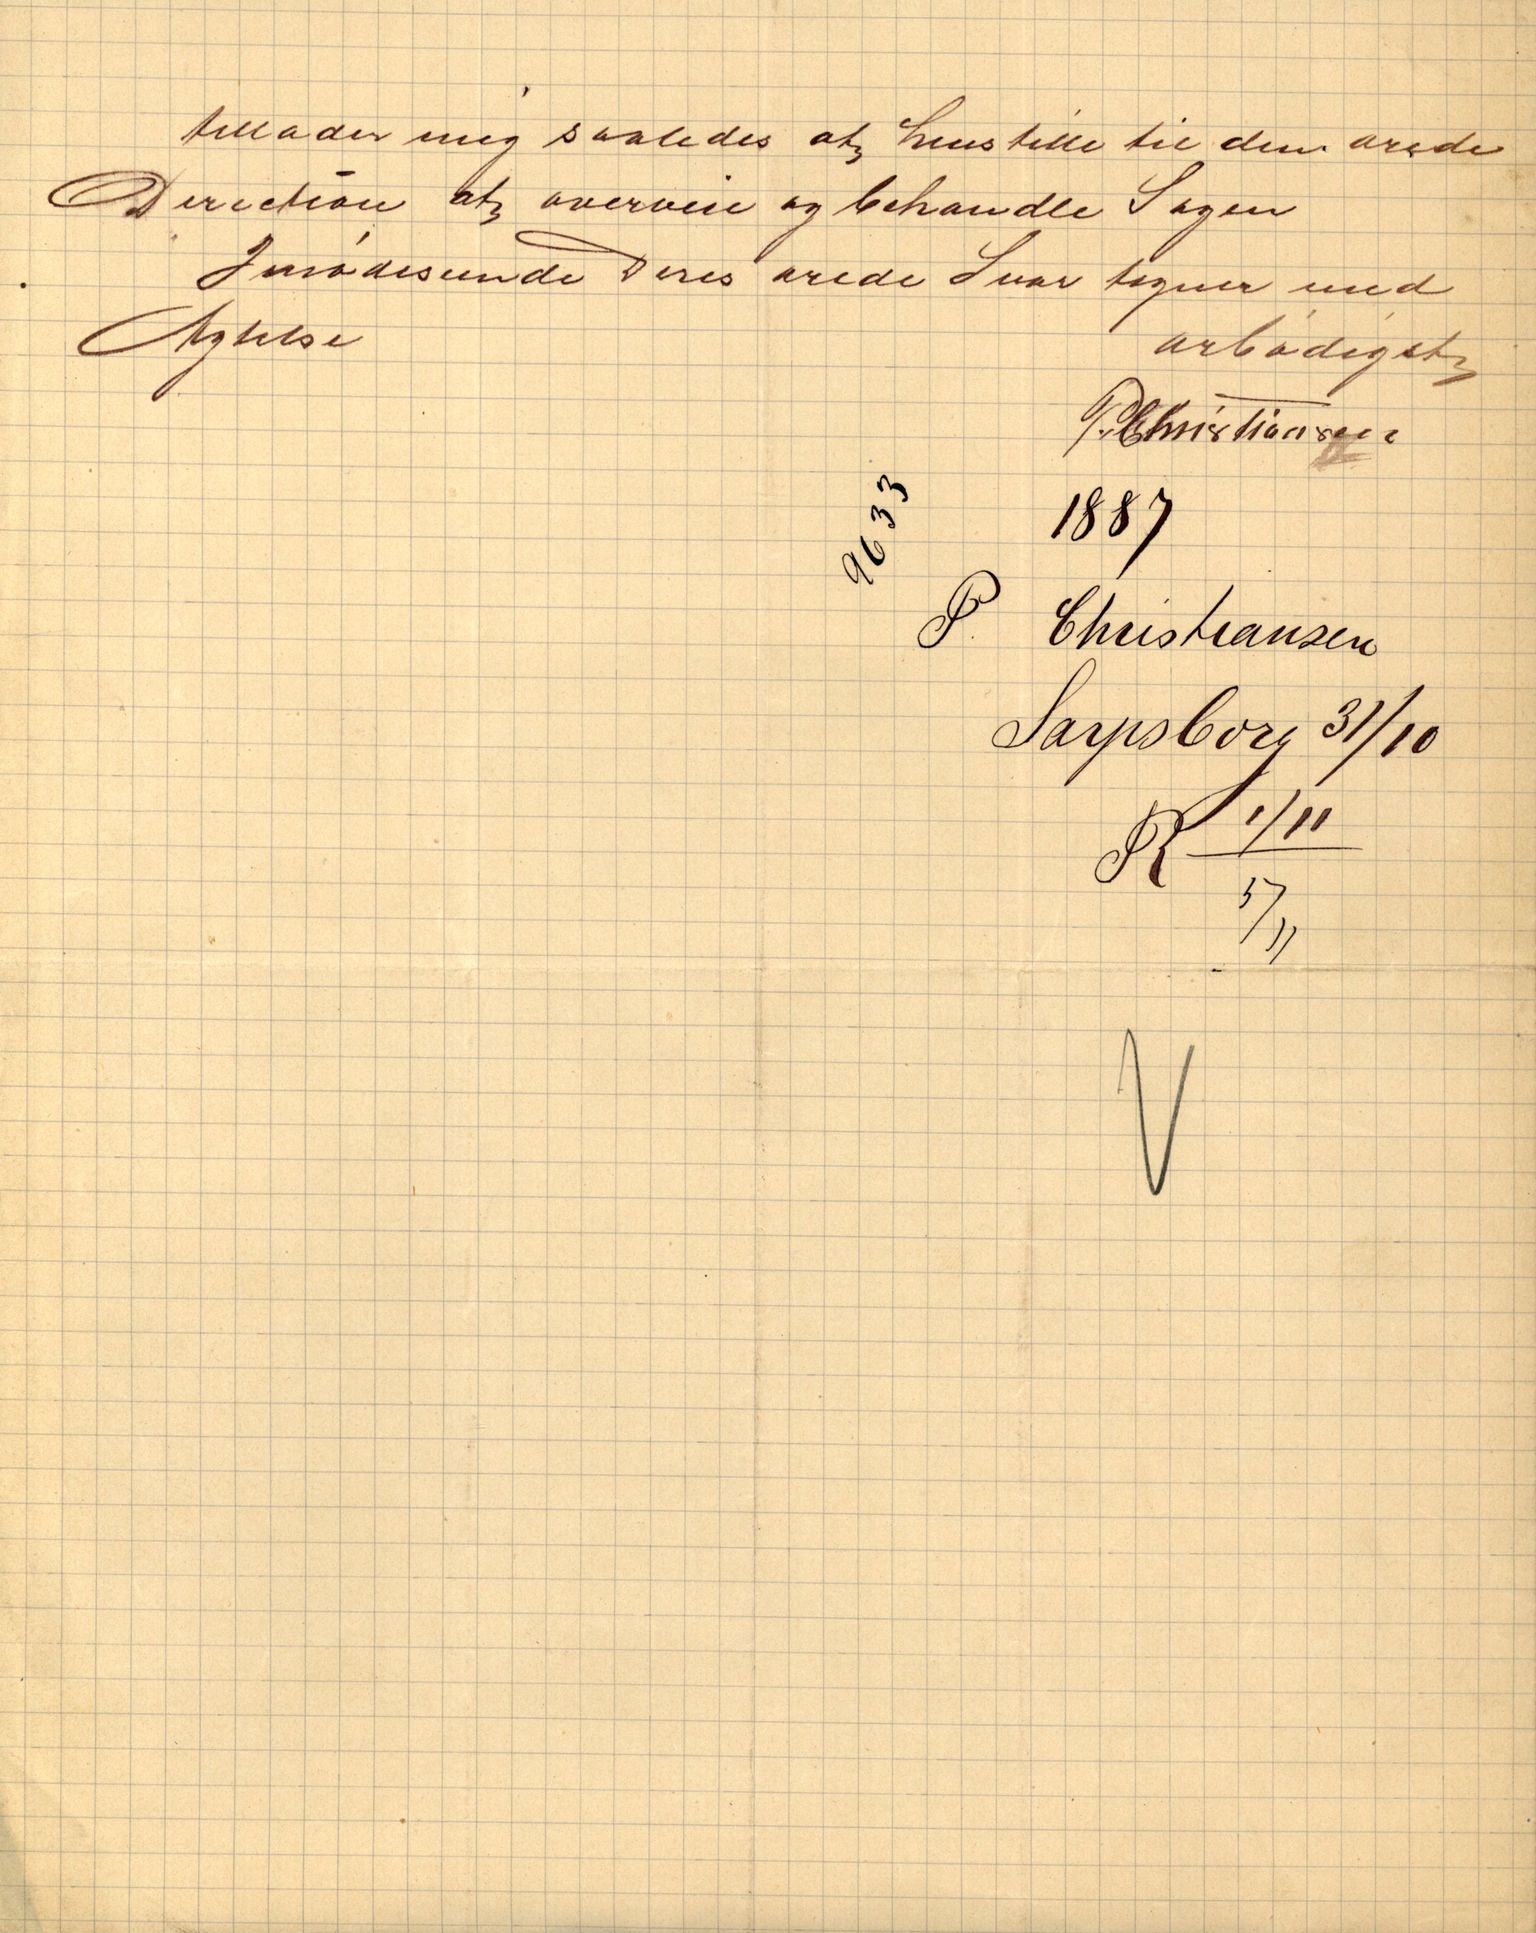 tillader mig saaledes at henstille til den ærede
Direction at overveie og behandle Sagen
Imødeseende Deres ærede Svar tegner med
Agtelse
ærbødigst
P. Christiansen
9633
1887
P. Christiansen
Sarpsborg 31/10
R 1/11
5/11
V